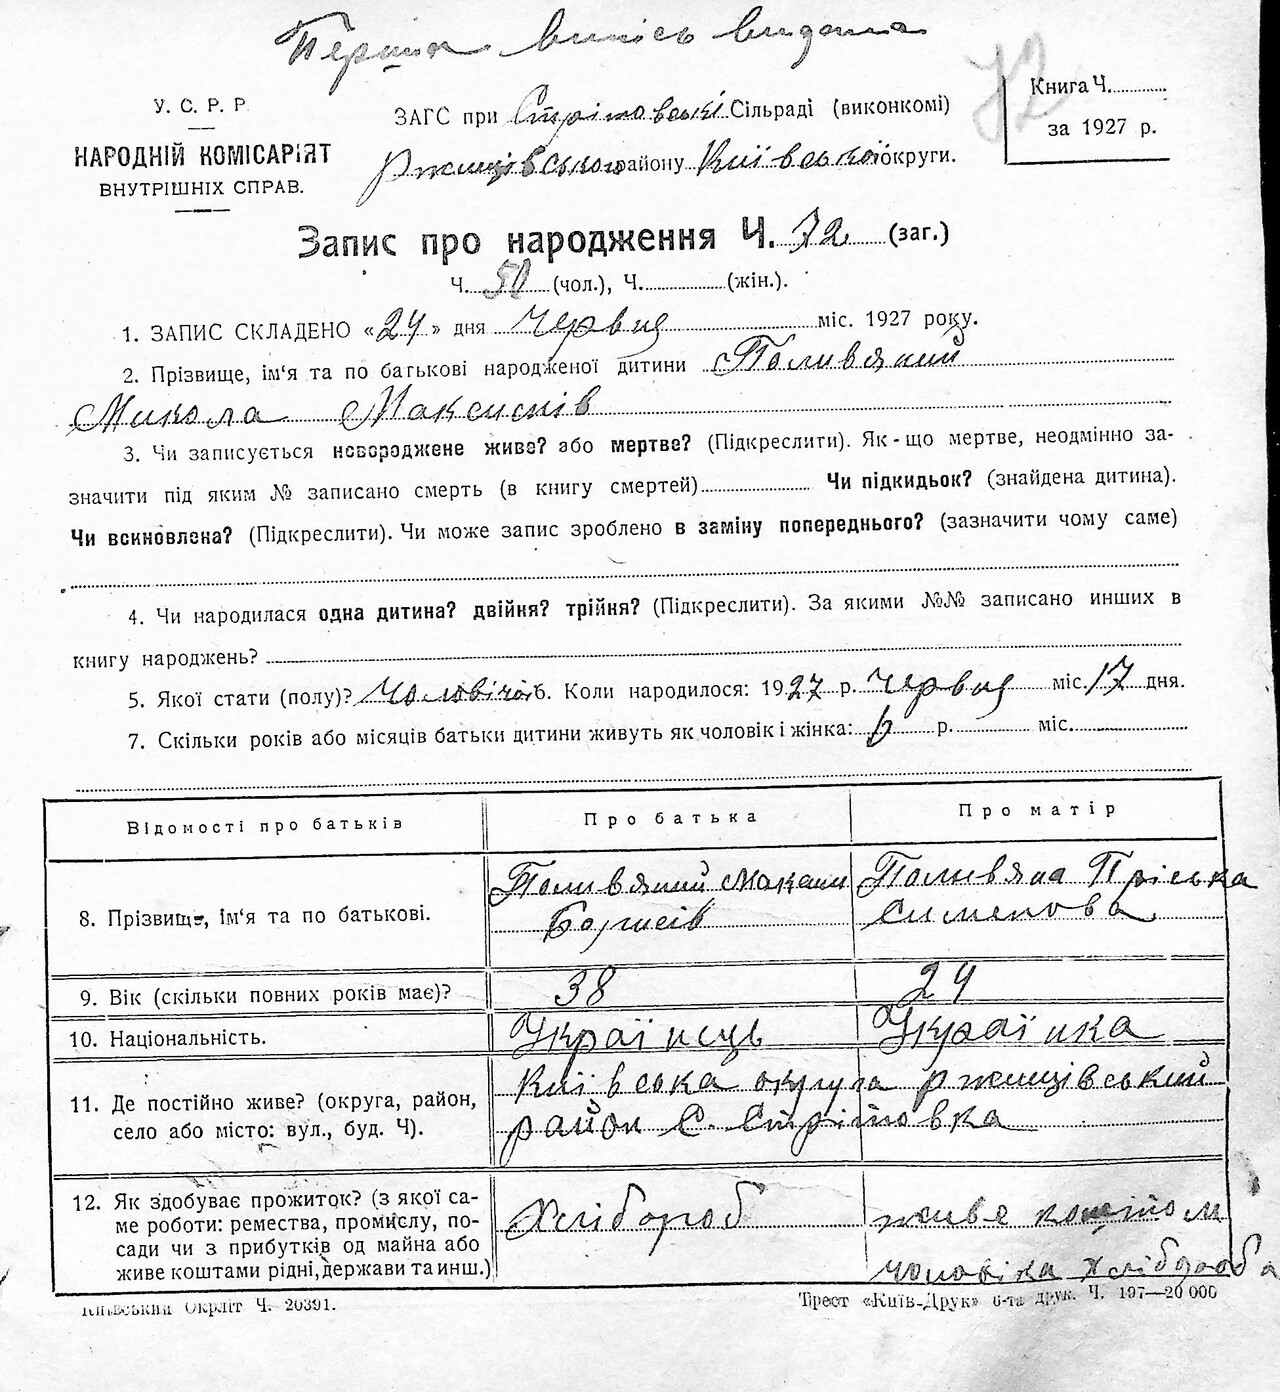 Перша випись видана
72
У. С. Р. Р.
НАРОДНІЙ КОМІСАРІЯТ
ВНУТРІШНІХ СПРАВ.
ЗАГС при Стрітовські Сільраді (виконкомі)
Ржищівського району Київської округи.
Книга Ч.
за 1927 р.
Запис про народження Ч. 72 (заг.)
Ч. 50 (чол.), Ч. (жін.).
1. ЗАПИС СКЛАДЕНО «24» дня Червня міс. 1927 року.
2. Прізвище, ім'я та по батькові народженої дитини Поливяний
Микола Максимів
3. Чи записується новороджене живе? або мертве? (Підкреслити). Як-що мертве, неодмінно за-
значити під яким № записано смерть (в книгу смертей) Чи підкидьок? (знайдена дитина).
Чи всиновлена? (Підкреслити). Чи може запис зроблено в заміну попереднього? (зазначити чому саме)
4. Чи народилася одна дитина? двійня? трійня? (Підкреслити). За якими №№ записано инших в
книгу народжень?
5. Якої стати (полу)? Чоловічої 6. Коли народилося: 1927 р. Червня міс. 17 дня.
7. Скільки років або місяців батьки дитини живуть як чоловік і жінка: 6 р. міс.
Відомості про батьків Про батька Про матір
8. Прізвище, ім'я та по батькові. Поливяний Максим Поливяна Пріська
Борисів Сименова
9. Вік (скільки повних років має)? 38 24
10. Національність. Українець Українка
11. Де постійно живе? (округа, район, Київська округа ржищівський
село або місто: вул., буд. Ч). район С. Стрітовка
12. Як здобуває прожиток? (з якої са- Хлібороб живе коштом
ме роботи: ремества, промислу, по-
сади чи з прибутків од майна або
живе коштами рідні, держави та инш.) чоловіка хлібороба
Київський Окрліт Ч. 20391.
Трест «Київ-Друк» 6-та друк. Ч. 197—20 000